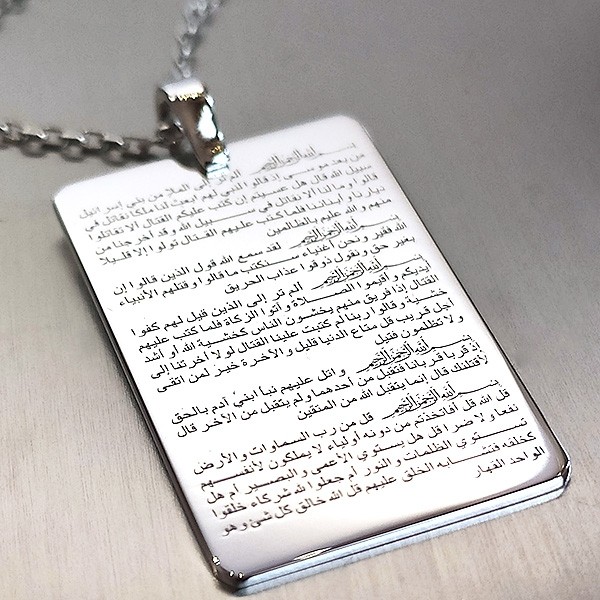 بسم الله الرحمن الرحيم الم تر إلى الملا من بني إسرائيل
من بعد موسى إذ قالوا لنبي لهم ابعث لنا ملكا نقاتل في
سبيل الله قال هل عسيتم إن كتب عليكم القتال ألا تقاتلوا
قالوا وما لنا ألا نقاتل في سبيل الله وقد أخرجنا من
ديارنا وأبنائنا فلما كتب عليهم القتال تولوا إلا قليلا
منهم والله عليم بالظالمين
بسم الله الرحمن الرحيم لقد سمع الله قول الذين قالوا إن
الله فقير ونحن أغنياء سنكتب ما قالوا وقتلهم الأنبياء
بغير حق ونقول ذوقوا عذاب الحريق
بسم الله الرحمن الرحيم الم تر إلى الذين قيل لهم كفوا
أيديكم وأقيموا الصلاة وآتوا الزكاة فلما كتب عليهم
القتال إذا فريق منهم يخشون الناس كخشية الله أو أشد
خشية وقالوا ربنا لم كتبت علينا القتال لولا أخرتنا إلى
أجل قريب قل متاع الدنيا قليل والآخرة خير لمن اتقى
ولا تظلمون فتيل
بسم الله الرحمن الرحيم واتل عليهم نبأ ابني آدم بالحق
إذ قربا قربانا فتقبل من أحدهما ولم يتقبل من الآخر قال
لأقتلنك قال إنما يتقبل الله من المتقين
بسم الله الرحمن الرحيم قل من رب السماوات والأرض
قل الله قل أفاتخذتم من دونه أولياء لا يملكون لأنفسهم
نفعا ولا ضرا قل هل يستوي الأعمى والبصير أم هل
تستوي الظلمات والنور أم جعلوا لله شركاء خلقوا
كخلقه فتشابه الخلق عليهم قل الله خالق كل شئ وهو
الواحد القهار